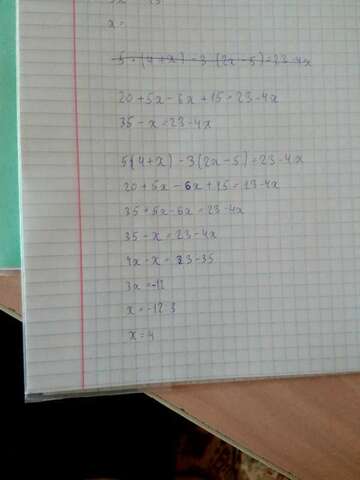 x =
5 · (4+x) - 3 (2x-5) = 23-4x
20+5x-6x+15=23-4x
35-x=23-4x
5(4+x)-3(2x-5)=23-4x
20+5x-6x+15=23-4x
35+5x-6x=23-4x
35-x=23-4x
4x-x=23-35
3x=-12
x=-12 3
x=4